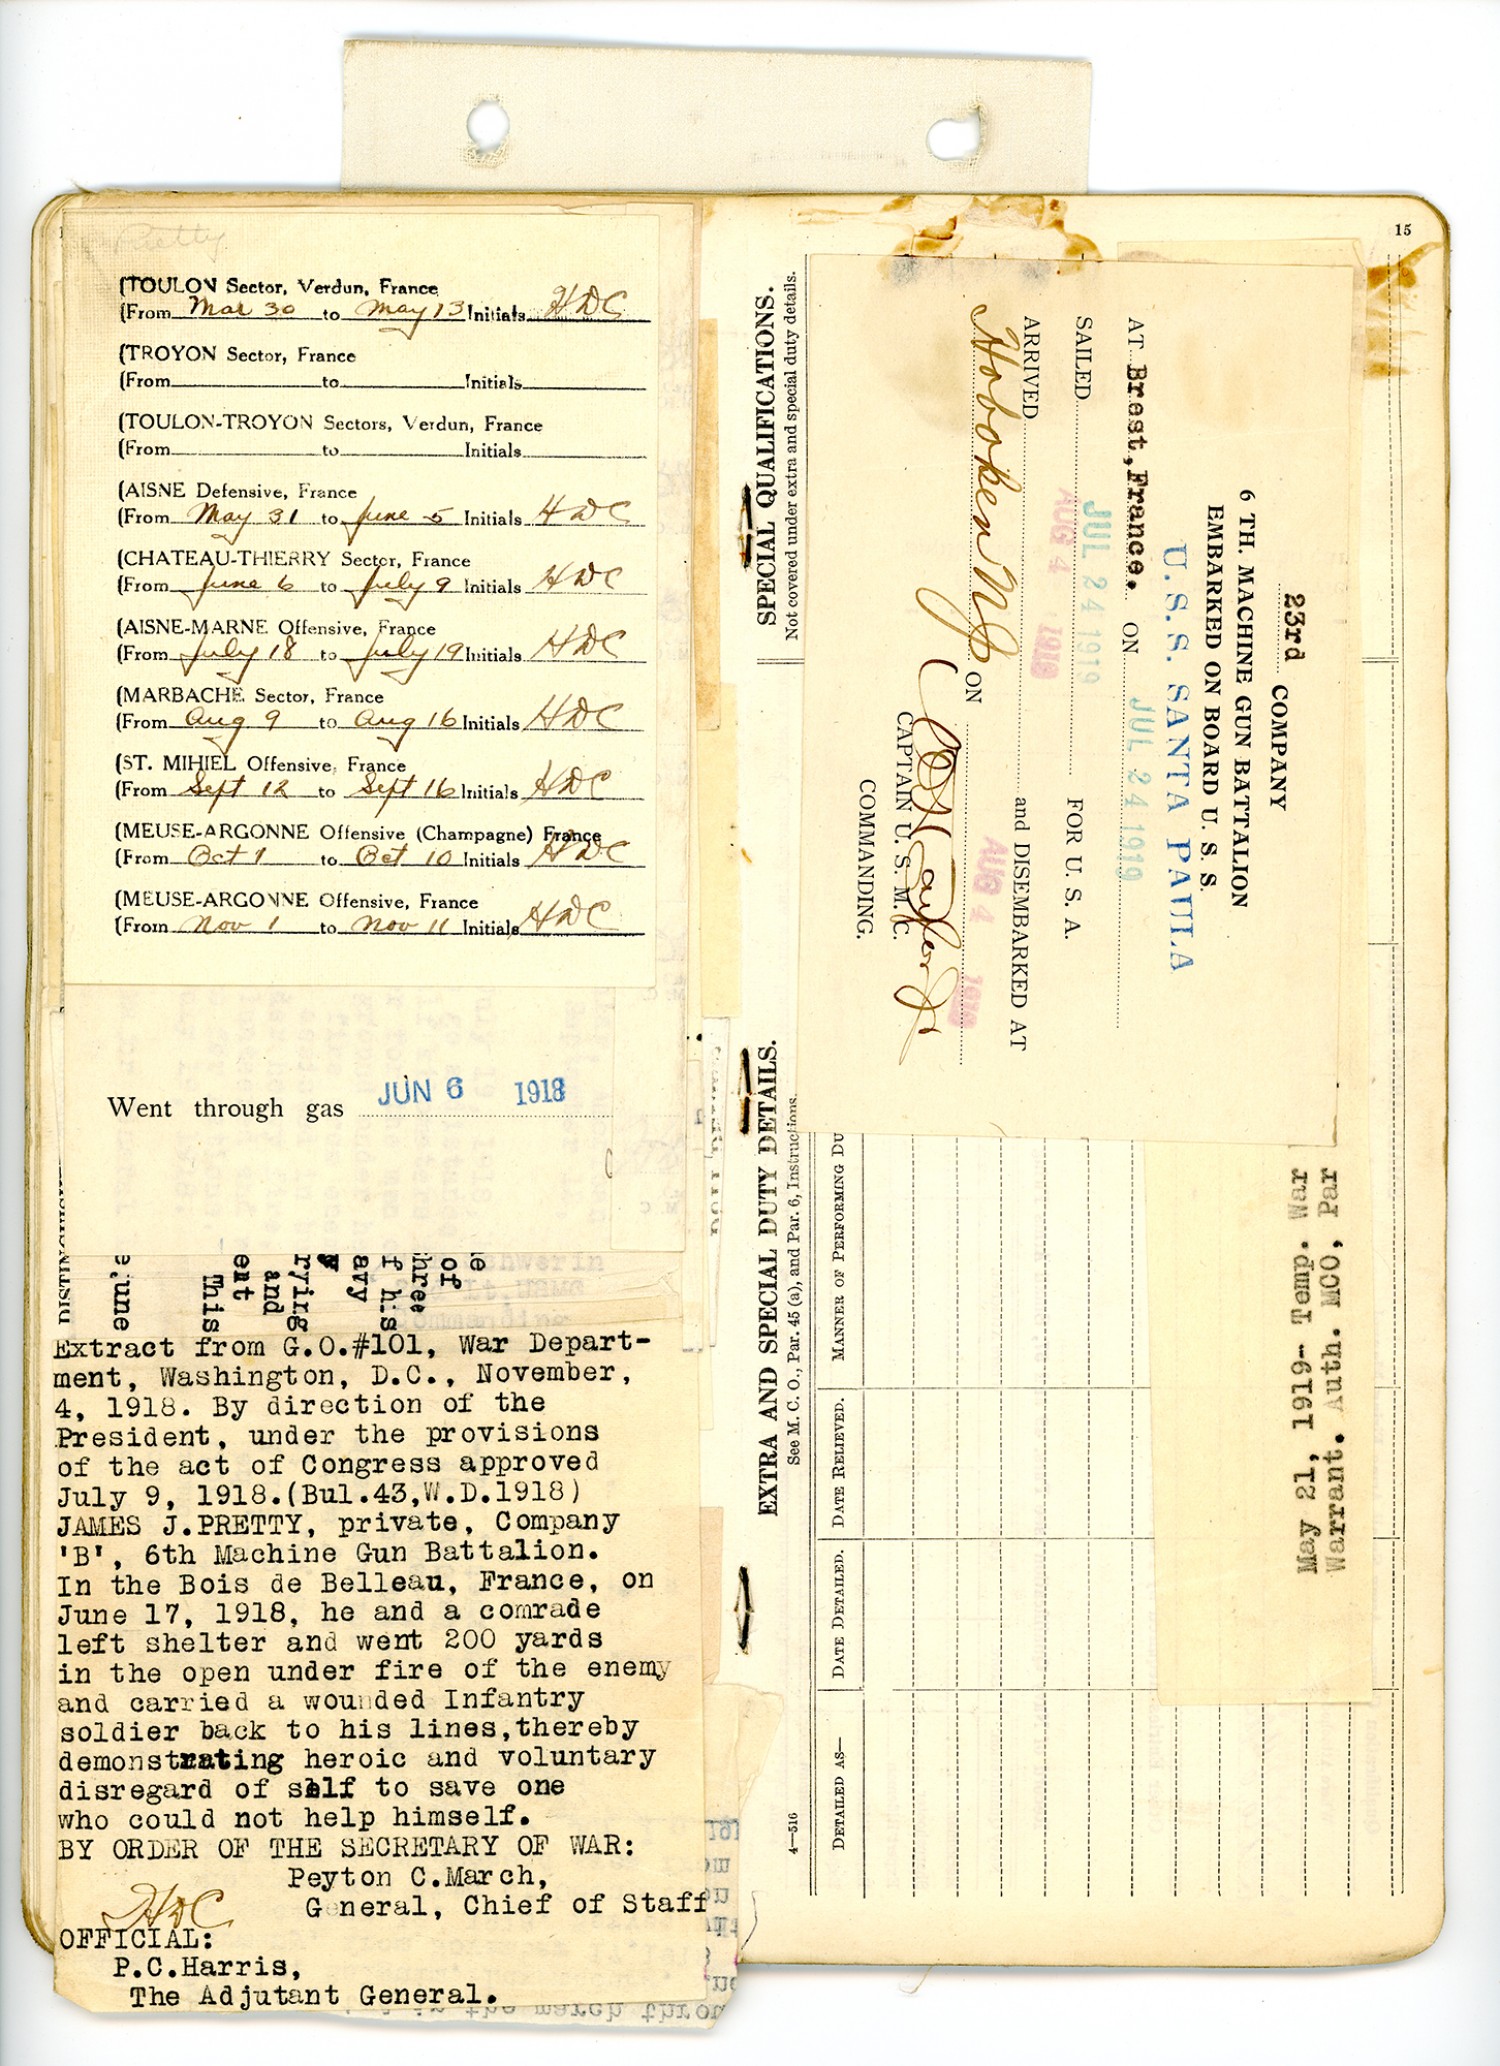 Pretty
(TOULON Sector, Verdun, France
(From Mar 30 to May 13 Initials HDC
(TROYON Sector, France
(From to Initials
(TOULON-TROYON Sectors, Verdun, France
(From to Initials
(AISNE Defensive, France
(From May 31 to June 5 Initials HDC
(CHATEAU-THIERRY Sector, France
(From June 6 to July 9 Initials HDC
(AISNE-MARNE Offensive, France
(From July 18 to July 19 Initials HDC
(MARBACHE Sector, France
(From Aug 9 to Aug 16 Initials HDC
(ST. MIHIEL Offensive, France
(From Sept 12 to Sept 16 Initials HDC
(MEUSE-ARGONNE Offensive (Champagne) France
(From Oct 1 to Oct 10 Initials HDC
(MEUSE-ARGONNE Offensive, France
(From Nov 1 to Nov 11 Initials HDC
Went through gas JUN 6 1918
of
hree
f his
ary
rying
and
ent
This
e,une
Extract from G.O.#101, War Depart-
ment, Washington, D.C., November,
4, 1918. By direction of the
President, under the provisions
of the act of Congress approved
July 9, 1918.(Bul.43,W.D.1918)
JAMES J.PRETTY, private, Company
'B', 6th Machine Gun Battalion.
In the Bois de Belleau, France, on
June 17, 1918, he and a comrade
left shelter and went 200 yards
in the open under fire of the enemy
and carried a wounded Infantry
soldier back to his lines,thereby
demonstrating heroic and voluntary
disregard of self to save one
who could not help himself.
BY ORDER OF THE SECRETARY OF WAR:
Peyton C.March,
General, Chief of Staff
HDC
OFFICIAL:
P.C.Harris,
The Adjutant General.
15
23rd COMPANY
6 TH. MACHINE GUN BATTALION
EMBARKED ON BOARD U. S. S.
U.S.S. SANTA PAULA
AT Brest,France. ON JUL 24 1919
SAILED JUL 24 1919 FOR U. S. A.
ARRIVED AUG 4 1919 and DISEMBARKED AT
Hoboken NJ ON AUG 4 1919
CAPTAIN U. S. M. C.
COMMANDING.
May 21, 1919- Temp. War
Warrant. Auth. MCO, Par
SPECIAL QUALIFICATIONS.
Not covered under extra and special duty details.
EXTRA AND SPECIAL DUTY DETAILS.
See M. C. O., Par. 45 (a), and Par. 6, Instructions.
MANNER OF PERFORMING DU
DATE RELIEVED.
DATE DETAILED.
DETAILED AS—
4—516